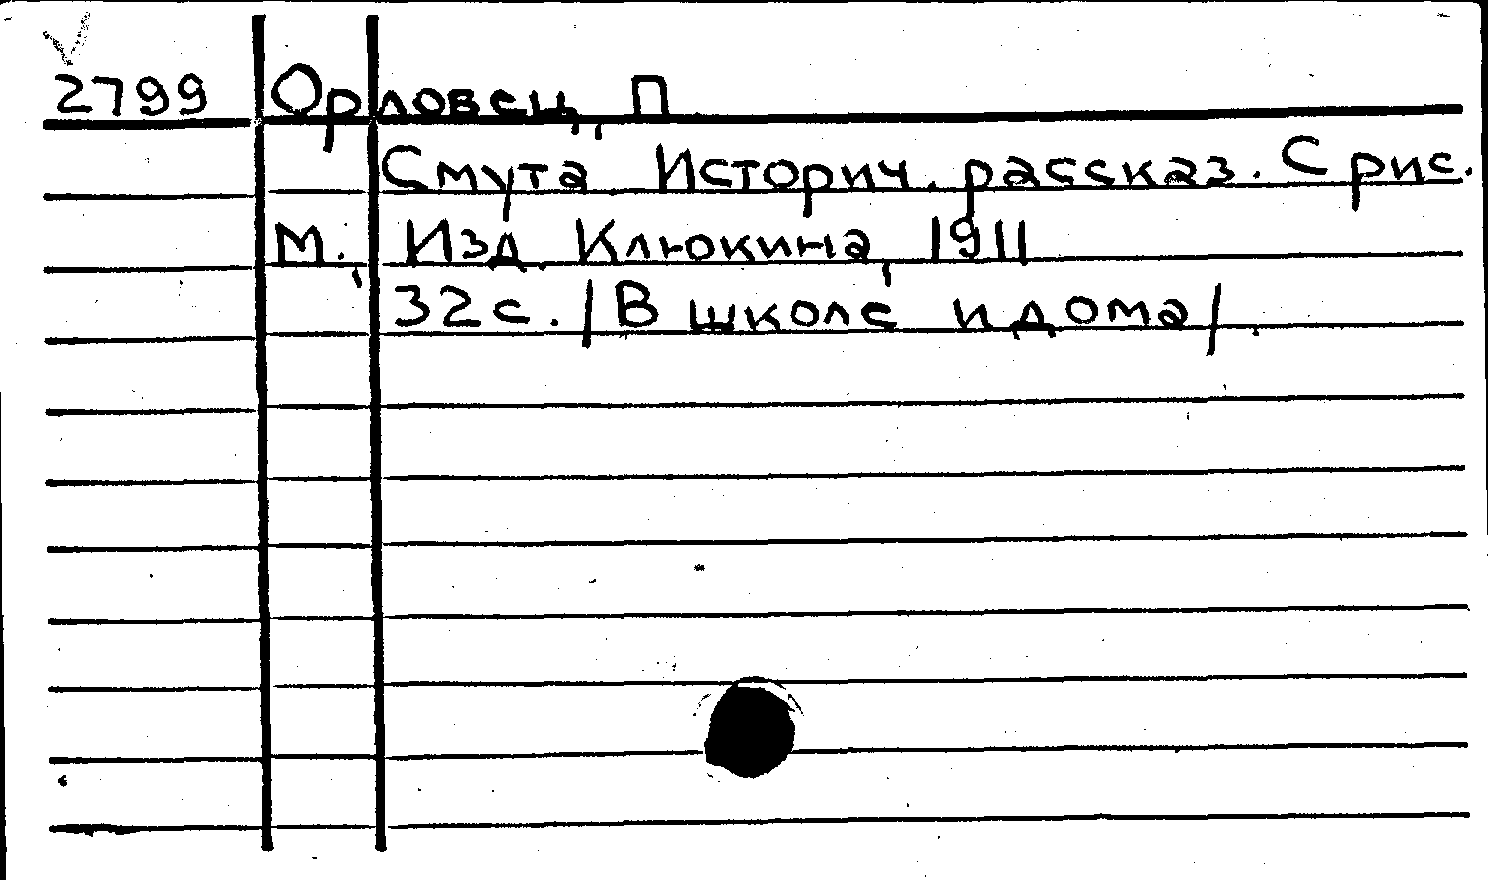 2799 Орловец, П
Смута Историч. рассказ. С рис.
М., Изд. Клюкина, 1911
32 с. /В школе и дома/.